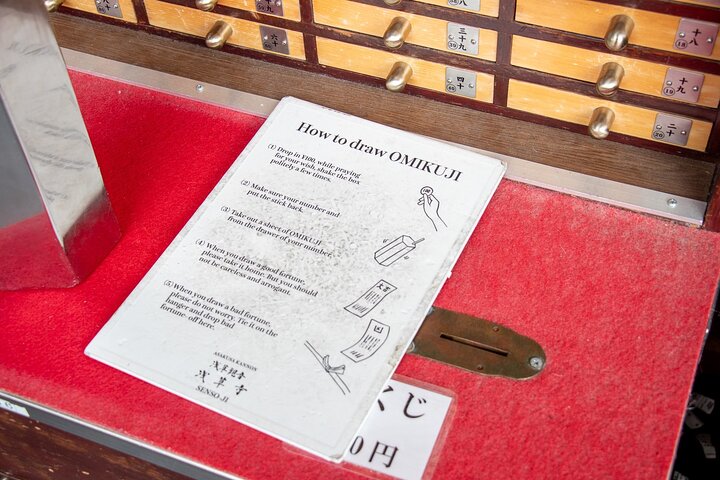 十八
18
六十
三十九
39
十九
19
四十
40
二十
20
How to draw OMIKUJI
(1) Drop in ¥100, while praying
for your wish, shake the box
politely a few times.
(2) Make sure your number and
put the stick back.
(3) Take out a sheet of OMIKUJI
from the drawer of your number.
(4) When you draw a good fortune,
please take it home. But you should
not be careless and arrogant.
(5) When you draw a bad fortune,
please do not worry. Tie it on the
hanger and drop bad
fortune off here.
大吉
凶
ASAKUSA KANNON
浅草観音
浅草寺
SENSO-JI
くじ
0円